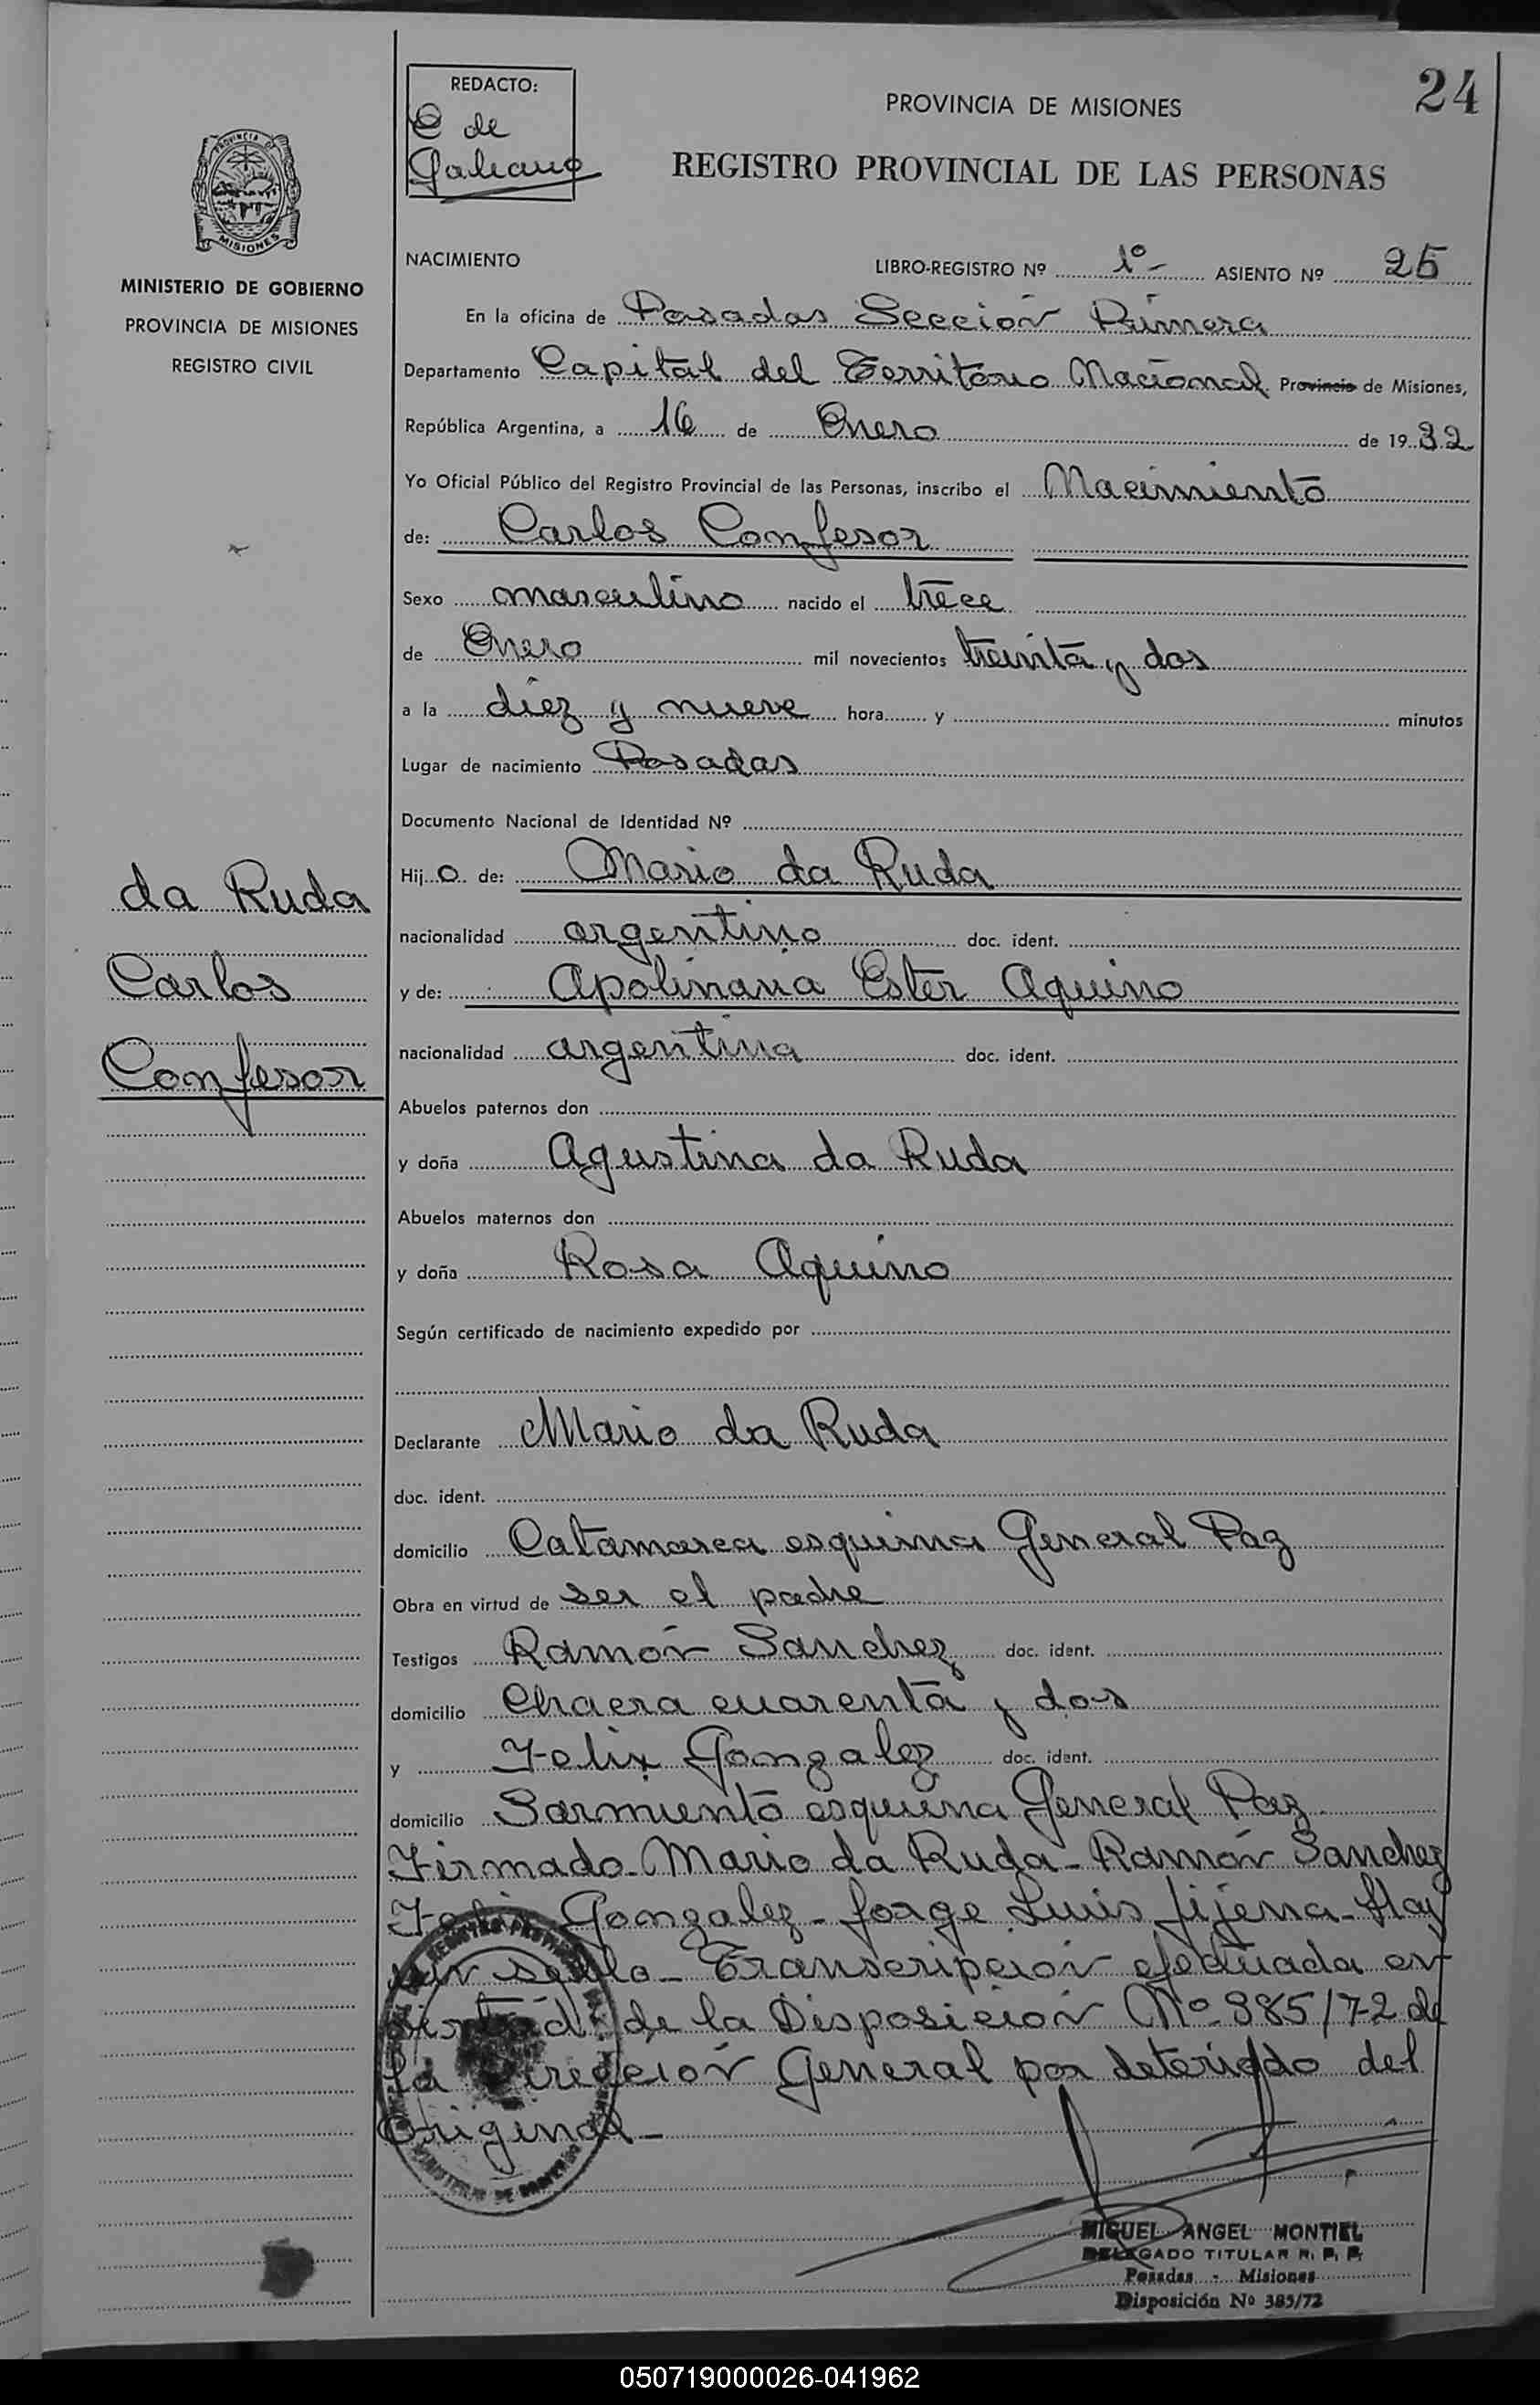 24
REDACTO:
E de
Galeano
PROVINCIA DE MISIONES
REGISTRO PROVINCIAL DE LAS PERSONAS
PROVINCIA DE
MISIONES
MINISTERIO DE GOBIERNO
PROVINCIA DE MISIONES
REGISTRO CIVIL
NACIMIENTO LIBRO-REGISTRO Nº 1º- ASIENTO Nº 25
En la oficina de Posadas Sección Primera
Departamento Capital del Territorio Nacional Provincia de Misiones,
República Argentina, a 16 de Enero de 19 32
Yo Oficial Público del Registro Provincial de las Personas, inscribo el Nacimiento
de: Carlos Confesor
Sexo masculino nacido el trece
de Enero mil novecientos treinta y dos
a la diez y nueve hora y minutos
Lugar de nacimiento Posadas
Documento Nacional de Identidad Nº
da Ruda
Carlos
Confesor
Hij o de: Mario da Ruda
nacionalidad argentino doc. ident.
y de: Apolinaria Ester Aquino
nacionalidad argentina doc. ident.
Abuelos paternos don
y doña Agustina da Ruda
Abuelos maternos don
y doña Rosa Aquino
Según certificado de nacimiento expedido por
Declarante Mario da Ruda
doc. ident.
domicilio Catamarca esquina General Paz
Obra en virtud de ser el padre
Testigos Ramón Sanchez doc. ident.
domicilio Chacra cuarenta y dos
y Felix Gonzalez doc. ident.
domicilio Sarmiento esquina General Paz
Firmado Mario da Ruda - Ramón Sanchez
Felix Gonzalez - Jorge Luis Jijena - Hay
un sello - Transcripción efectuada en
virtud de la Disposición Nº 385/72 de
la Dirección General por deteriodo del
Original -
MIGUEL ANGEL MONTIEL
DELEGADO TITULAR R. P. P.
Posadas - Misiones
Disposición Nº 385/72
050719000026-041962